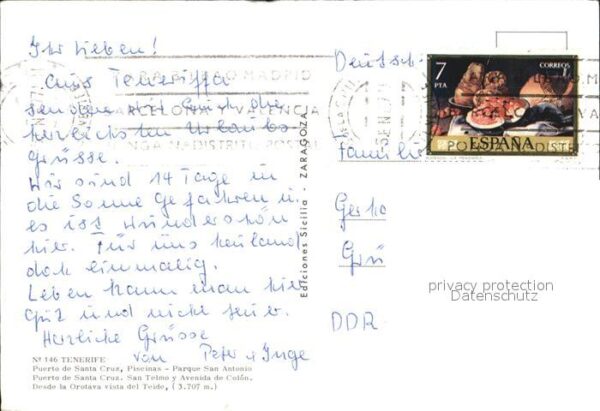 Ihr Lieben!
Aus Teneriffa
senden wir Euch die
herzlichsten Urlaubs
Grüsse.
Wir sind 14 Tage in
die Sonne gefahren u.
es ist wunderschön
hier. Für uns
doch einmalig.
Leben kann man hier
gut und nicht teuer.
Herzliche Grüsse
von Peter u Inge
Nº 146 TENERIFE
Puerto de Santa Cruz, Piscinas – Parque San Antonio
Puerto de Santa Cruz. San Telmo y Avenida de Colón.
Desde la Orotava vista del Teide, (3.707 m.)
Ediciones Sicilia - ZARAGOZA
BILBAO MADRID
BARCELONA Y VALENCIA
PONGA DISTRITO POSTAL
7
PTA
CORREOS
ESPAÑA
Deutsch.
Familie
Gerha
Grü
DDR
privacy protection
Datenschutz